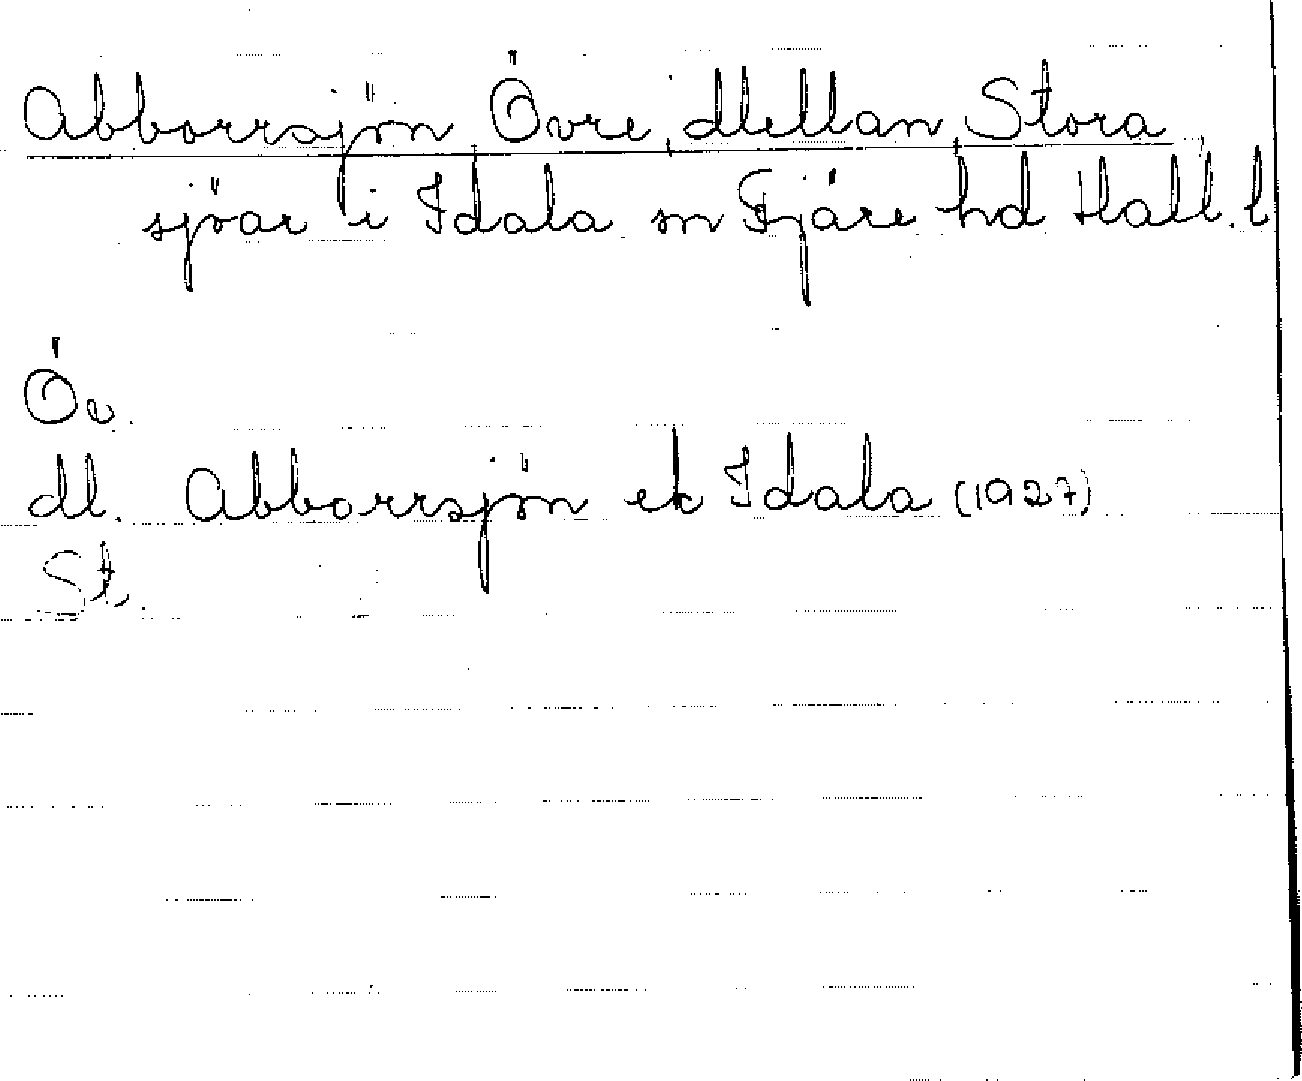 Abborrsjön, Övre, Mellan, Stora,
sjöar i Idala sn Fjäre hd Hall. l
Öv.
Ml. Abborrsjön ek Idala (1927)
St.